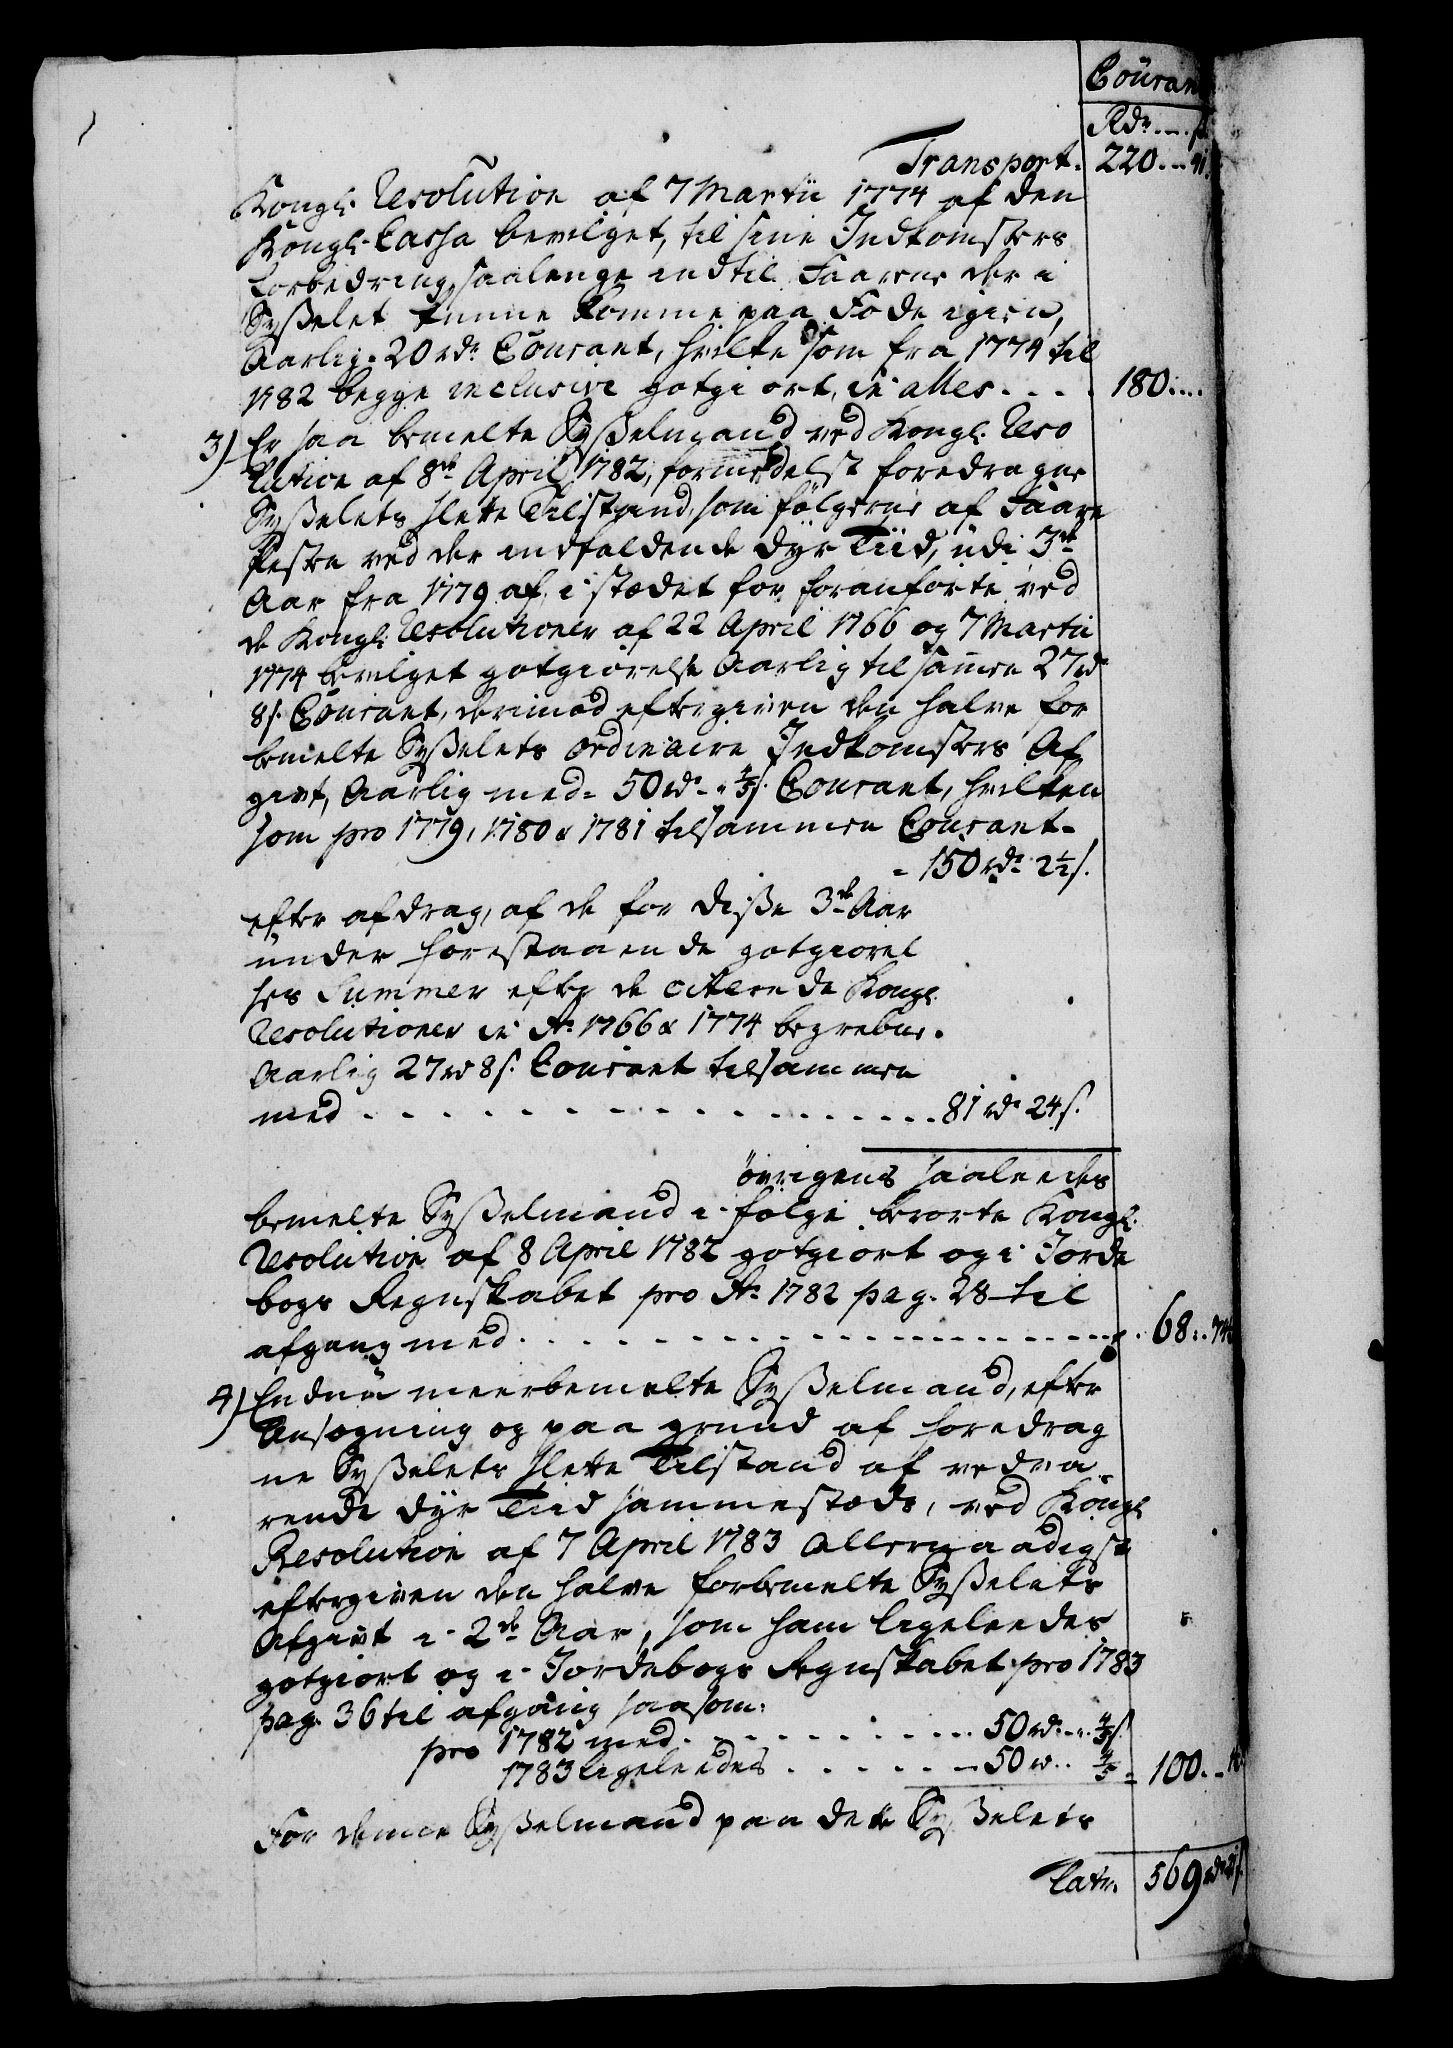 Couran
Rdr. ... s
Transport. 220...
Kongl: Resolution af 7 Martii 1774 af den
Kongl. Cassa bevilget, til sine Indkomsters
Forbedring, saalenge indtil Faarene der i
Syßelet kunne komme paa Fode igien,
Aarlig. 20 rdr Courant, hvilke som fra 1774 til
1782 begge inclusive gotgiort, er alles. . . . 180. ...
3) Er saa bemelte Syßelmand ved Kongl. Reso
lution af 8de April 1782, formedelst foredragne
Syßelets slette Tilstand, som følgerne af Faare
Pesten ved der indfaldende dyr Tiid, udi 3de
Aar fra 1779 af, i stædet for foranførte ved
de Kongl: Resolutioner af 22 April 1766 og 7 Martii
1774 bevilget gotgiørelse Aarlig tilsamen 27 rd
8 s. Courant, derimod eftergiven den halve for
bemelte Syßelets ordinaire Indkomsters Af
givt, Aarlig med 50 rd. 4/5 s. Courant, hvilken
som pro 1779, 1780 & 1781 tilsammen Courant
150 rdr 2 1/2 s.
efter afdrag, af de for diße 3de Aar
under forestaaende gotgiørel
ses Summer efter de citerende Kongl.
Resolutioner de Ao 1766 & 1774 begrebne.
Aarlig 27 rd 8 s. Courant tilsammen
med . . . . . . . . . 81 rdr 24 s.
øvrigens saaleedes
bemelte Syßelmand i følge berørte Kongl.
Resolution af 8 April 1782 gotgiort og i Jorde
bogs Regnskabet pro Ao 1782 pag. 28 til
afgang med . . . . . . . . . 68..
4) Endnu meerbemelte Syßelmand, efter
Ansøgning og paa grund af foredrag
ne Syßelets slette Tilstand af vedva
rende dyr Tiid sammestæds, ved Kongl
Resolution af 7 April 1783 Allernaadigst
eftergiven den halve forbemelte Syßelets
Afgivt i 2de Aar, som ham ligeleedes
gotgiort og i Jordebogs Regnskabet pro 1783
pag. 36 til afgang saasom:
pro 1782 med . . . . . . 50 rdr. .. 4/5 s.
1783 ligeleedes . . . . . . 50 rd. . 4/5 100. .
For denne Syßelmand paa dette Syßelets
Latr. 569 rdr